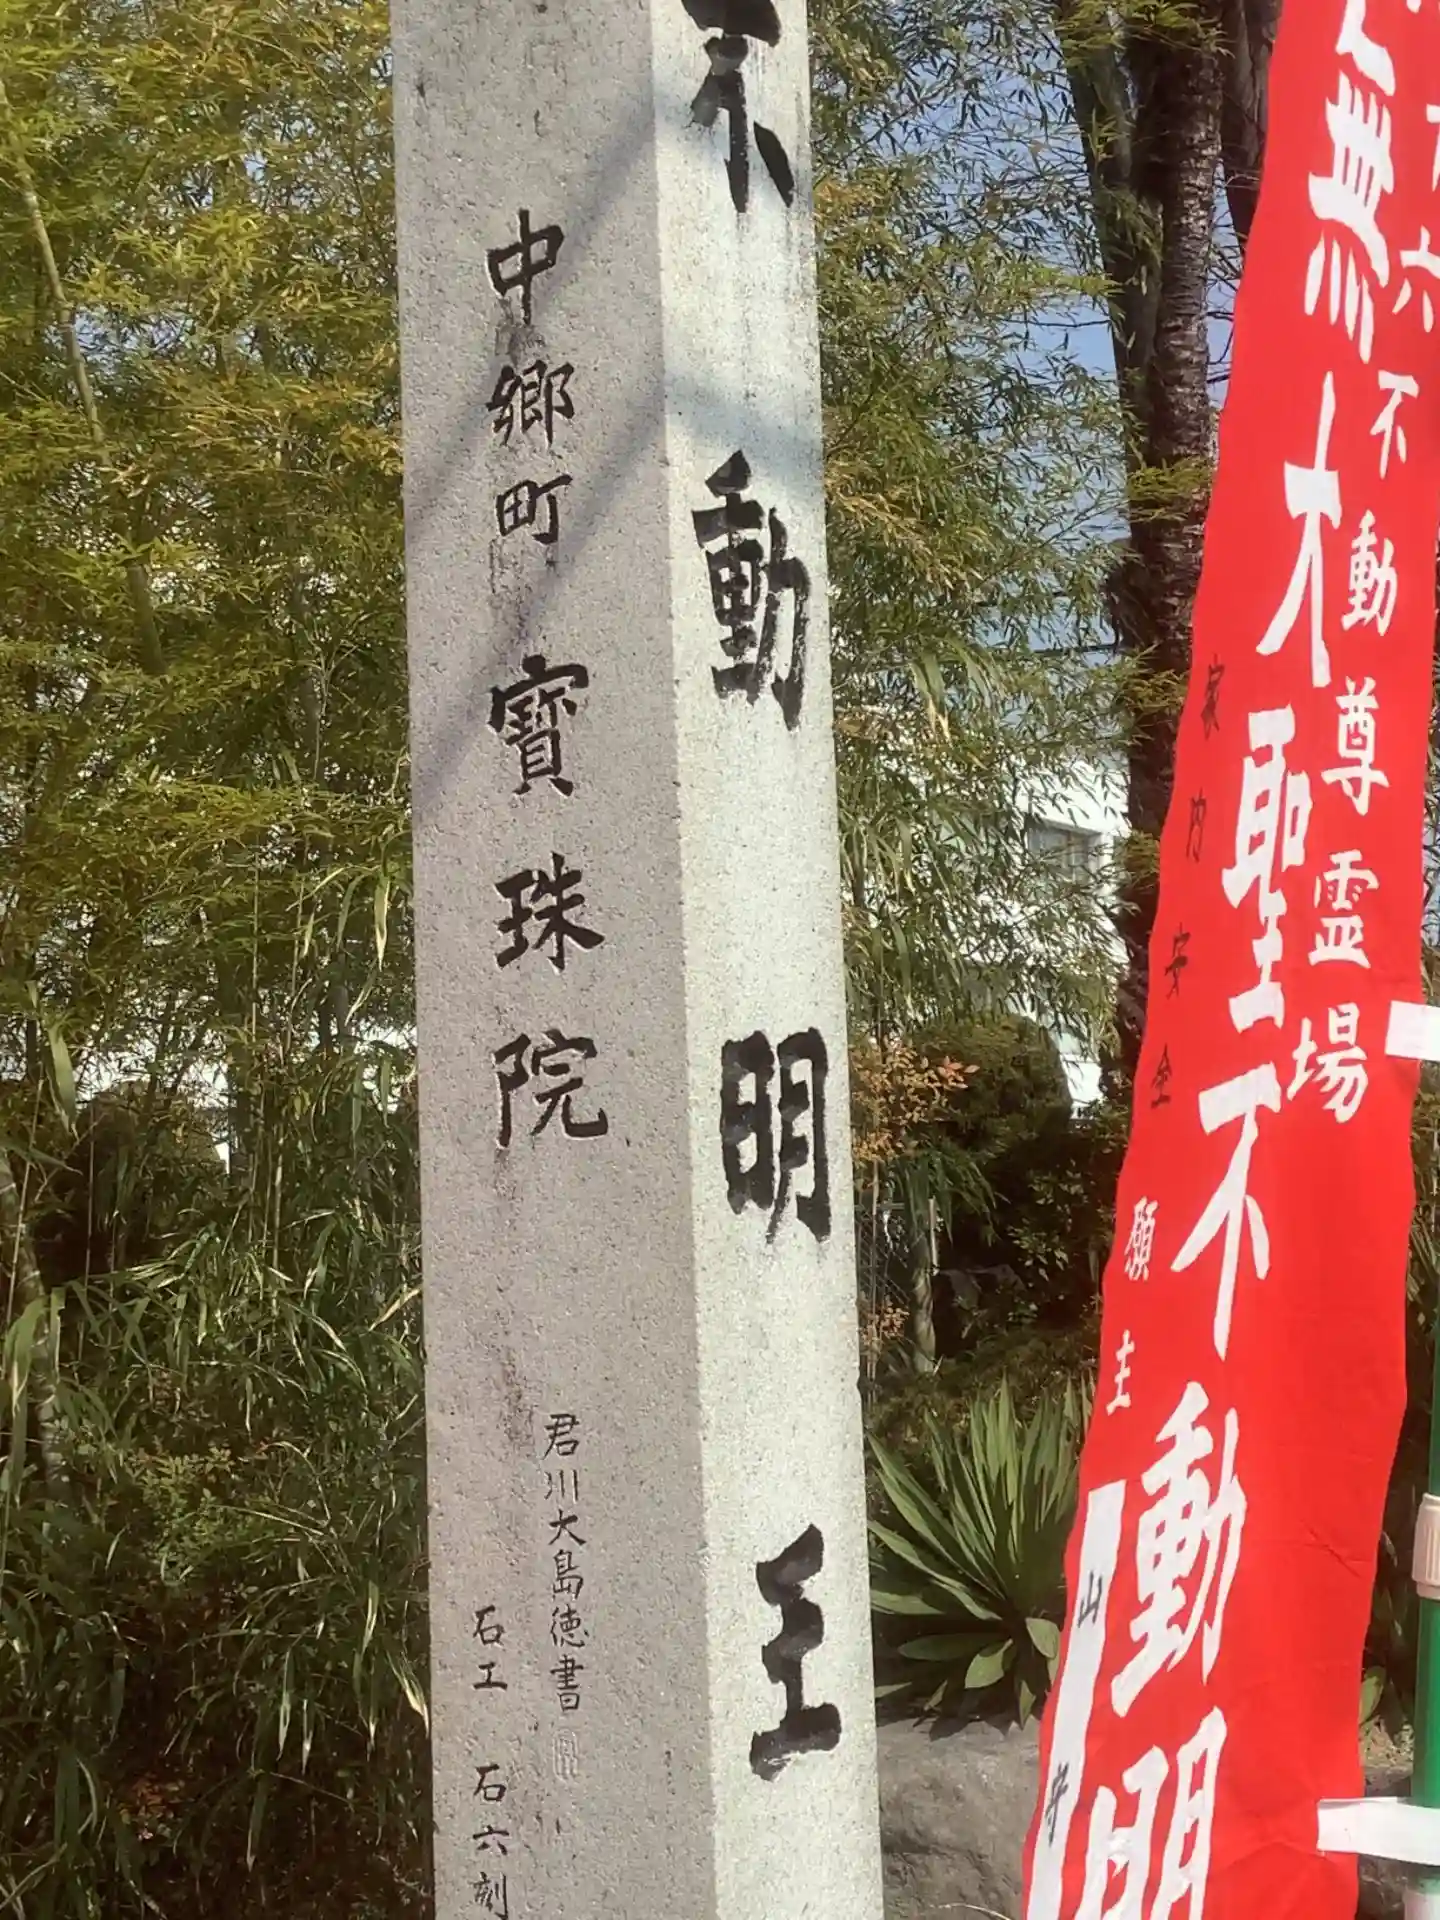 不動明王
中郷町 寳珠院
君川大島徳書
石工 石六刻
六不動尊霊場
無大聖不動明
家内安全
願主